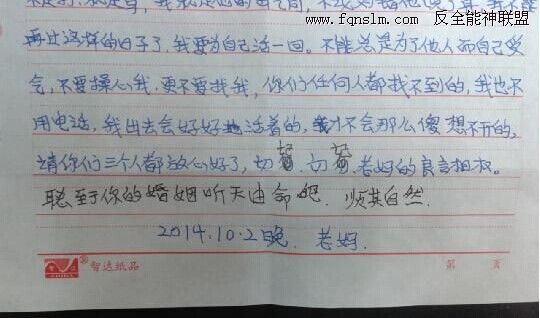 www.fqnslm.com 反全能神联盟
再过这样的日子了,我要为自己活一回。不能总是为了他人而自己受
气,不要操心我,更不要找我,你们任何人都找不到的,我也不
用电话,我出去会好好地活着的,我才不会那么傻想不开的,
请你们三个人都放心好了,切 切 老妈的良言相权。
聪至于你的婚姻听天由命吧.顺其自然.
2014.10.2晚. 老妈.
智达纸品
第 页